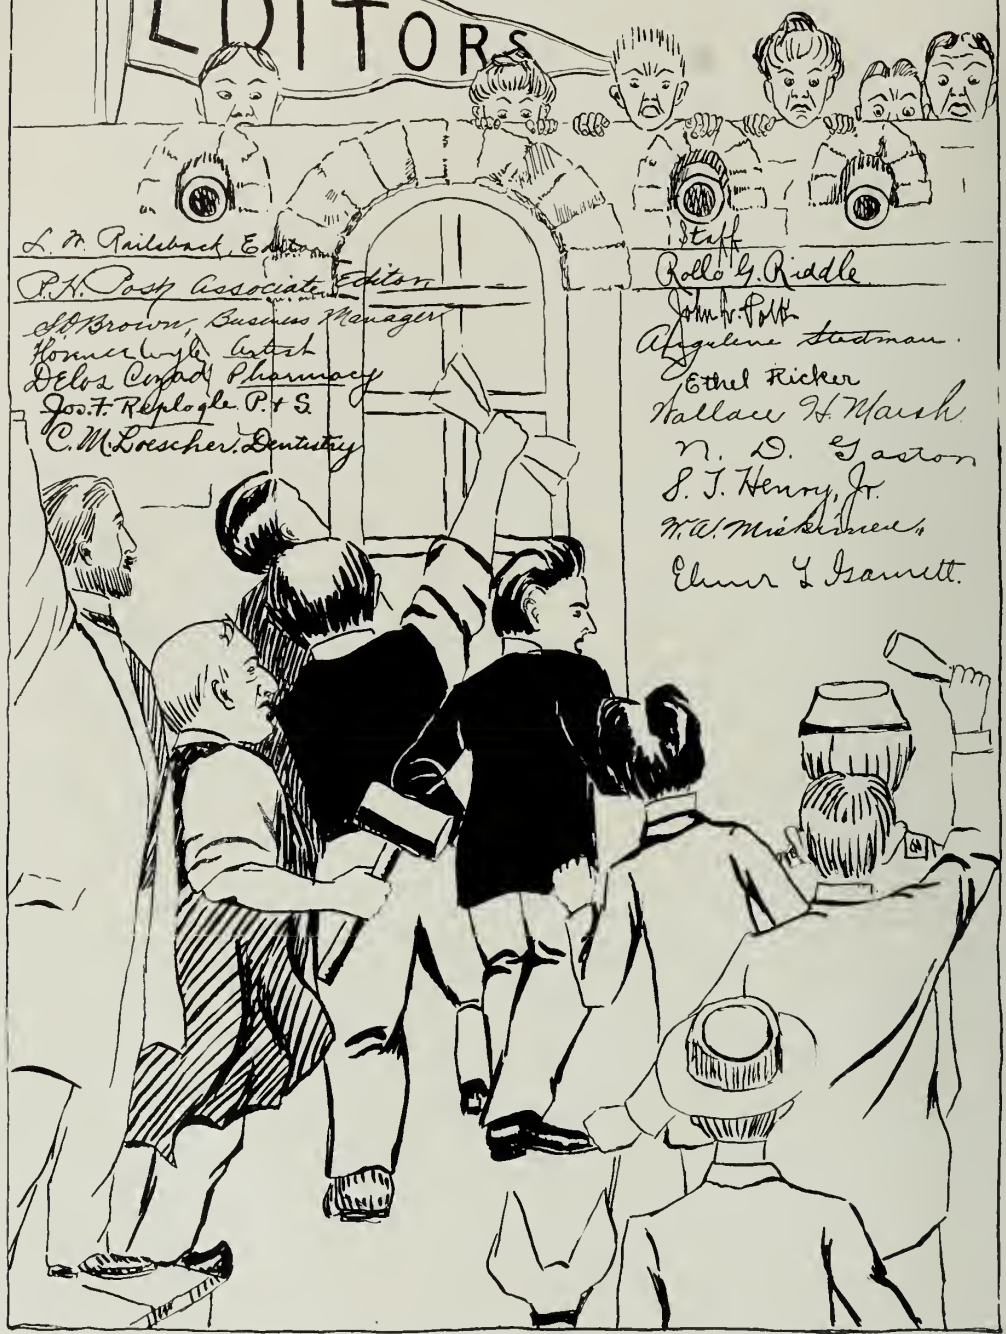 EDITORS
L. M. Railsback, Editor
P. H. Post Associate Editor
S D Brown, Business Manager
Florence Wyle Artist
DeLos Conrad Pharmacy
Jos. F. Replogle P. & S.
C. M. Loescher. Dentistry
Staff
Rollo G. Riddle
John V.
Angeline Stedman.
Ethel Ricker
Wallace H. Marsh.
N. D. Gaston
S. T. Henry, Jr.
W. W.
Elmer L